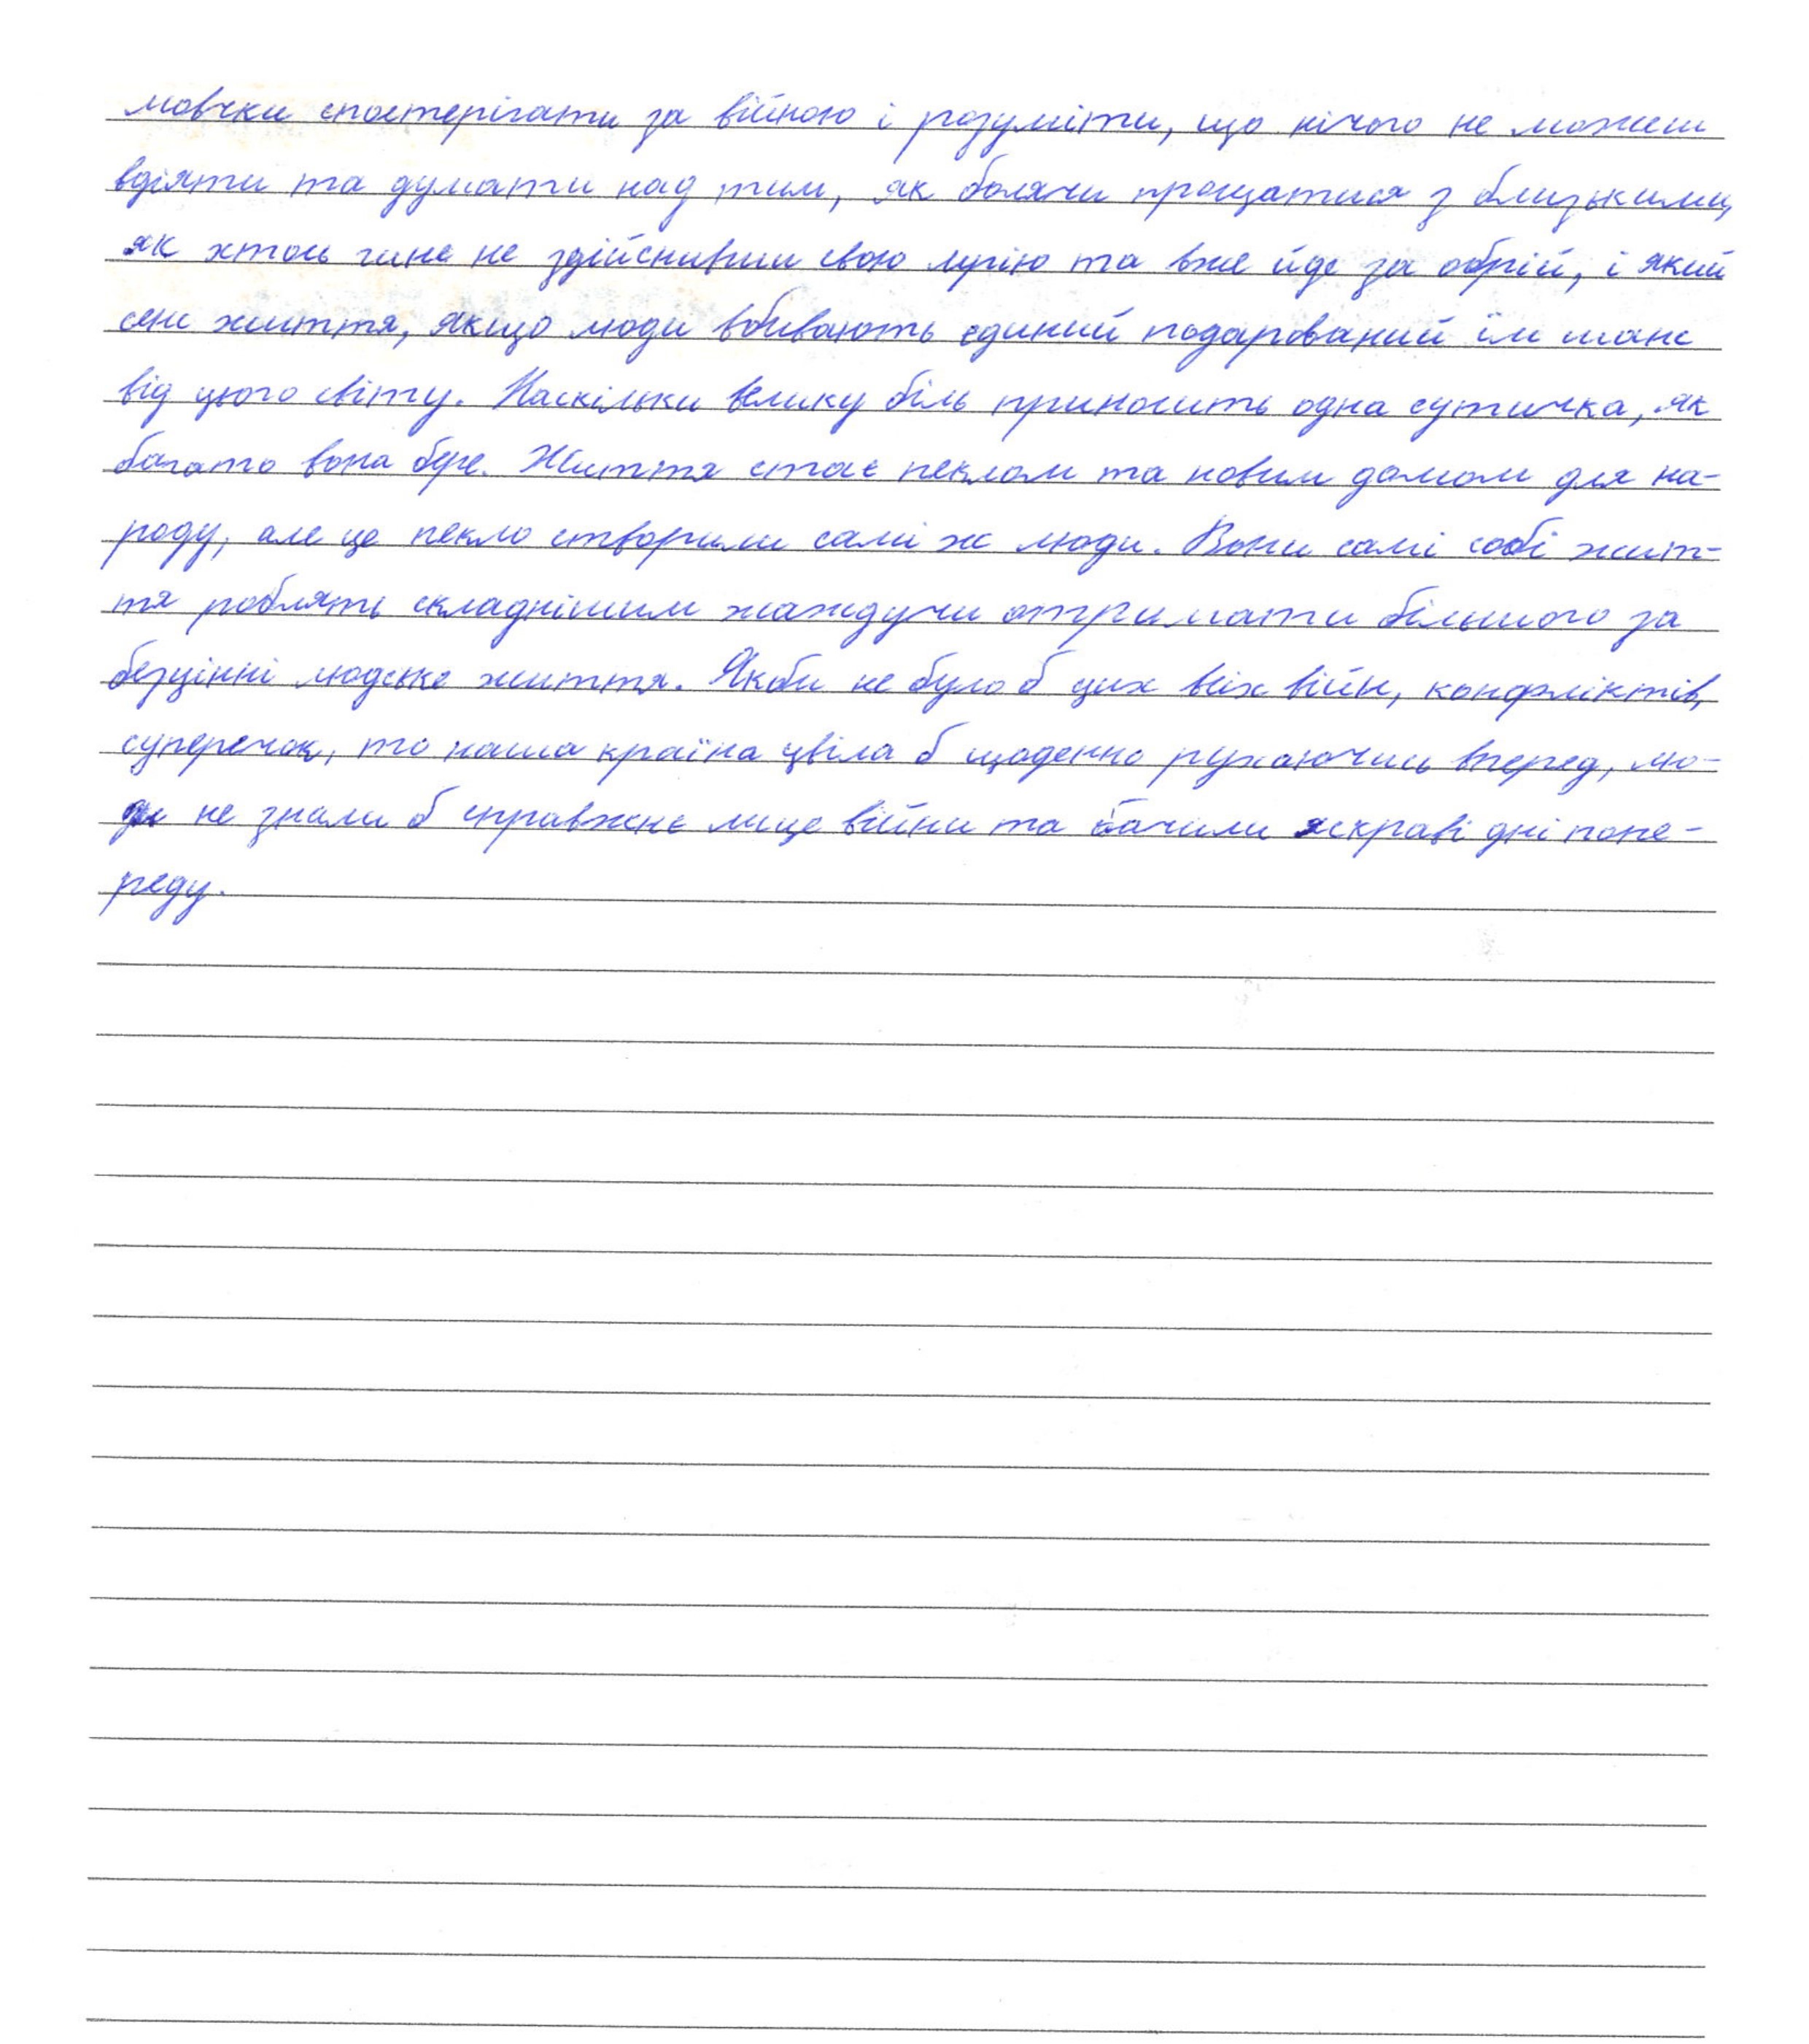 мовчки спостерігати за війною і розуміти, що нічого не можеш
вдіяти та думати над тим, як боляче прощатися з близькими,
як хтось гине не здійснивши свою мрію та вже йде за обрій, і який
сенс життя, якщо люди вбивають єдиний подарований їм шанс
від цього світу. Наскільки велику біль приносить одна сутичка, як
багато вона бере. Життя стає пеклом та новим домом для на-
роду, але це пекло створили самі ж люди. Вони самі собі жит-
тя роблять складнішим жаждучи отримати більшого за
безцінні людське життя. Якби не було б цих всіх війн, конфліктів,
суперечок, то наша країна цвіла б щоденно рухаючись вперед, лю-
ди не знали б справжнє лице війни та бачили яскраві дні попе-
реду.